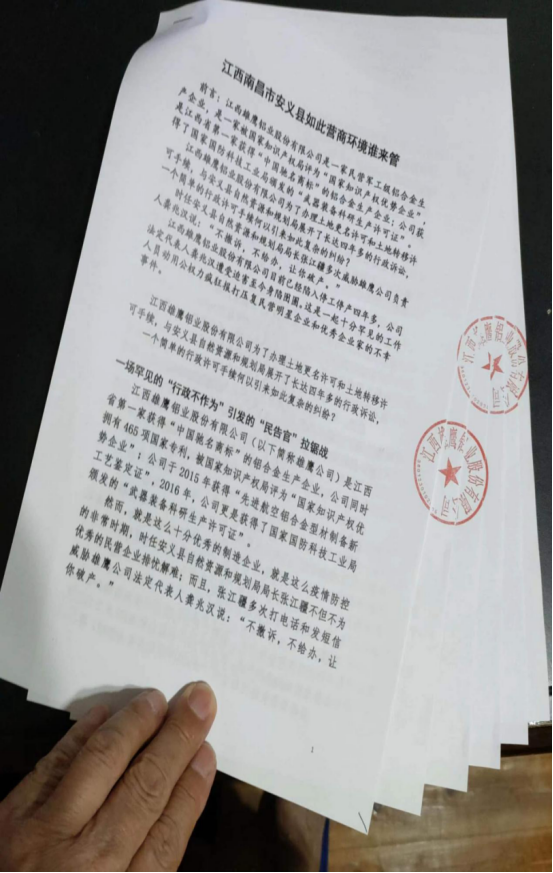 江西南昌市安义县如此营商环境谁来管
前言：江西雄鹰铝业股份有限公司是一家民营军工级铝合金生
产企业，是一家被国家知识产权局评为“国家知识产权优势企业”，
是江西省第一家获得“中国驰名商标”的铝合金生产企业；公司获
得了国家国防科技工业局颁发的“武器装备科研生产许可证”。
江西雄鹰铝业股份有限公司为了办理土地更名许可和土地转移许
可手续，与安义县自然资源和规划局展开了长达四年多的行政诉讼，
一个简单的行政许可手续何以引来如此复杂的纠纷？
时任安义县自然资源和规划局局长张江疆多次威胁雄鹰公司负责
人龚兆汉说：“不撤诉，不给办，让你破产。”
江西雄鹰铝业股份有限公司目前已经陷入停工停产四年多，公司
法定代表人龚兆汉遭受迫害至今身陷囹圄。这是一起十分罕见的工作
人员动用公权力疯狂报打压复民营明星企业和优秀企业家的不幸
事件。
江西雄鹰铝业股份有限公司为了办理土地更名许可和土地转移许
可手续，与安义县自然资源和规划局展开了长达四年多的行政诉讼，
一个简单的行政许可手续何以引来如此复杂的纠纷？
一场罕见的“行政不作为”引发的“民告官”拉锯战
江西雄鹰铝业股份有限公司（以下简称雄鹰公司）是江西
省第一家获得“中国驰名商标”的铝合金生产企业，公司同时
拥有465项国家专利，被国家知识产权局评为“国家知识产权优
势企业”；公司于2015年获得“先进航空铝合金型材制备新
工艺鉴定证”。2016年，公司更是获得了国家国防科技工业局
颁发的“武器装备科研生产许可证”。
然而，就是这么十分优秀的制造企业，就是这么疫情防控
的非常时期，时任安义县自然资源和规划局局长张江疆不但不为
优秀的民营企业排忧解难；而且，张江疆多次打电话和发短信
威胁雄鹰公司法定代表人龚兆汉说：“不撤诉，不给办，让
你破产。”
1